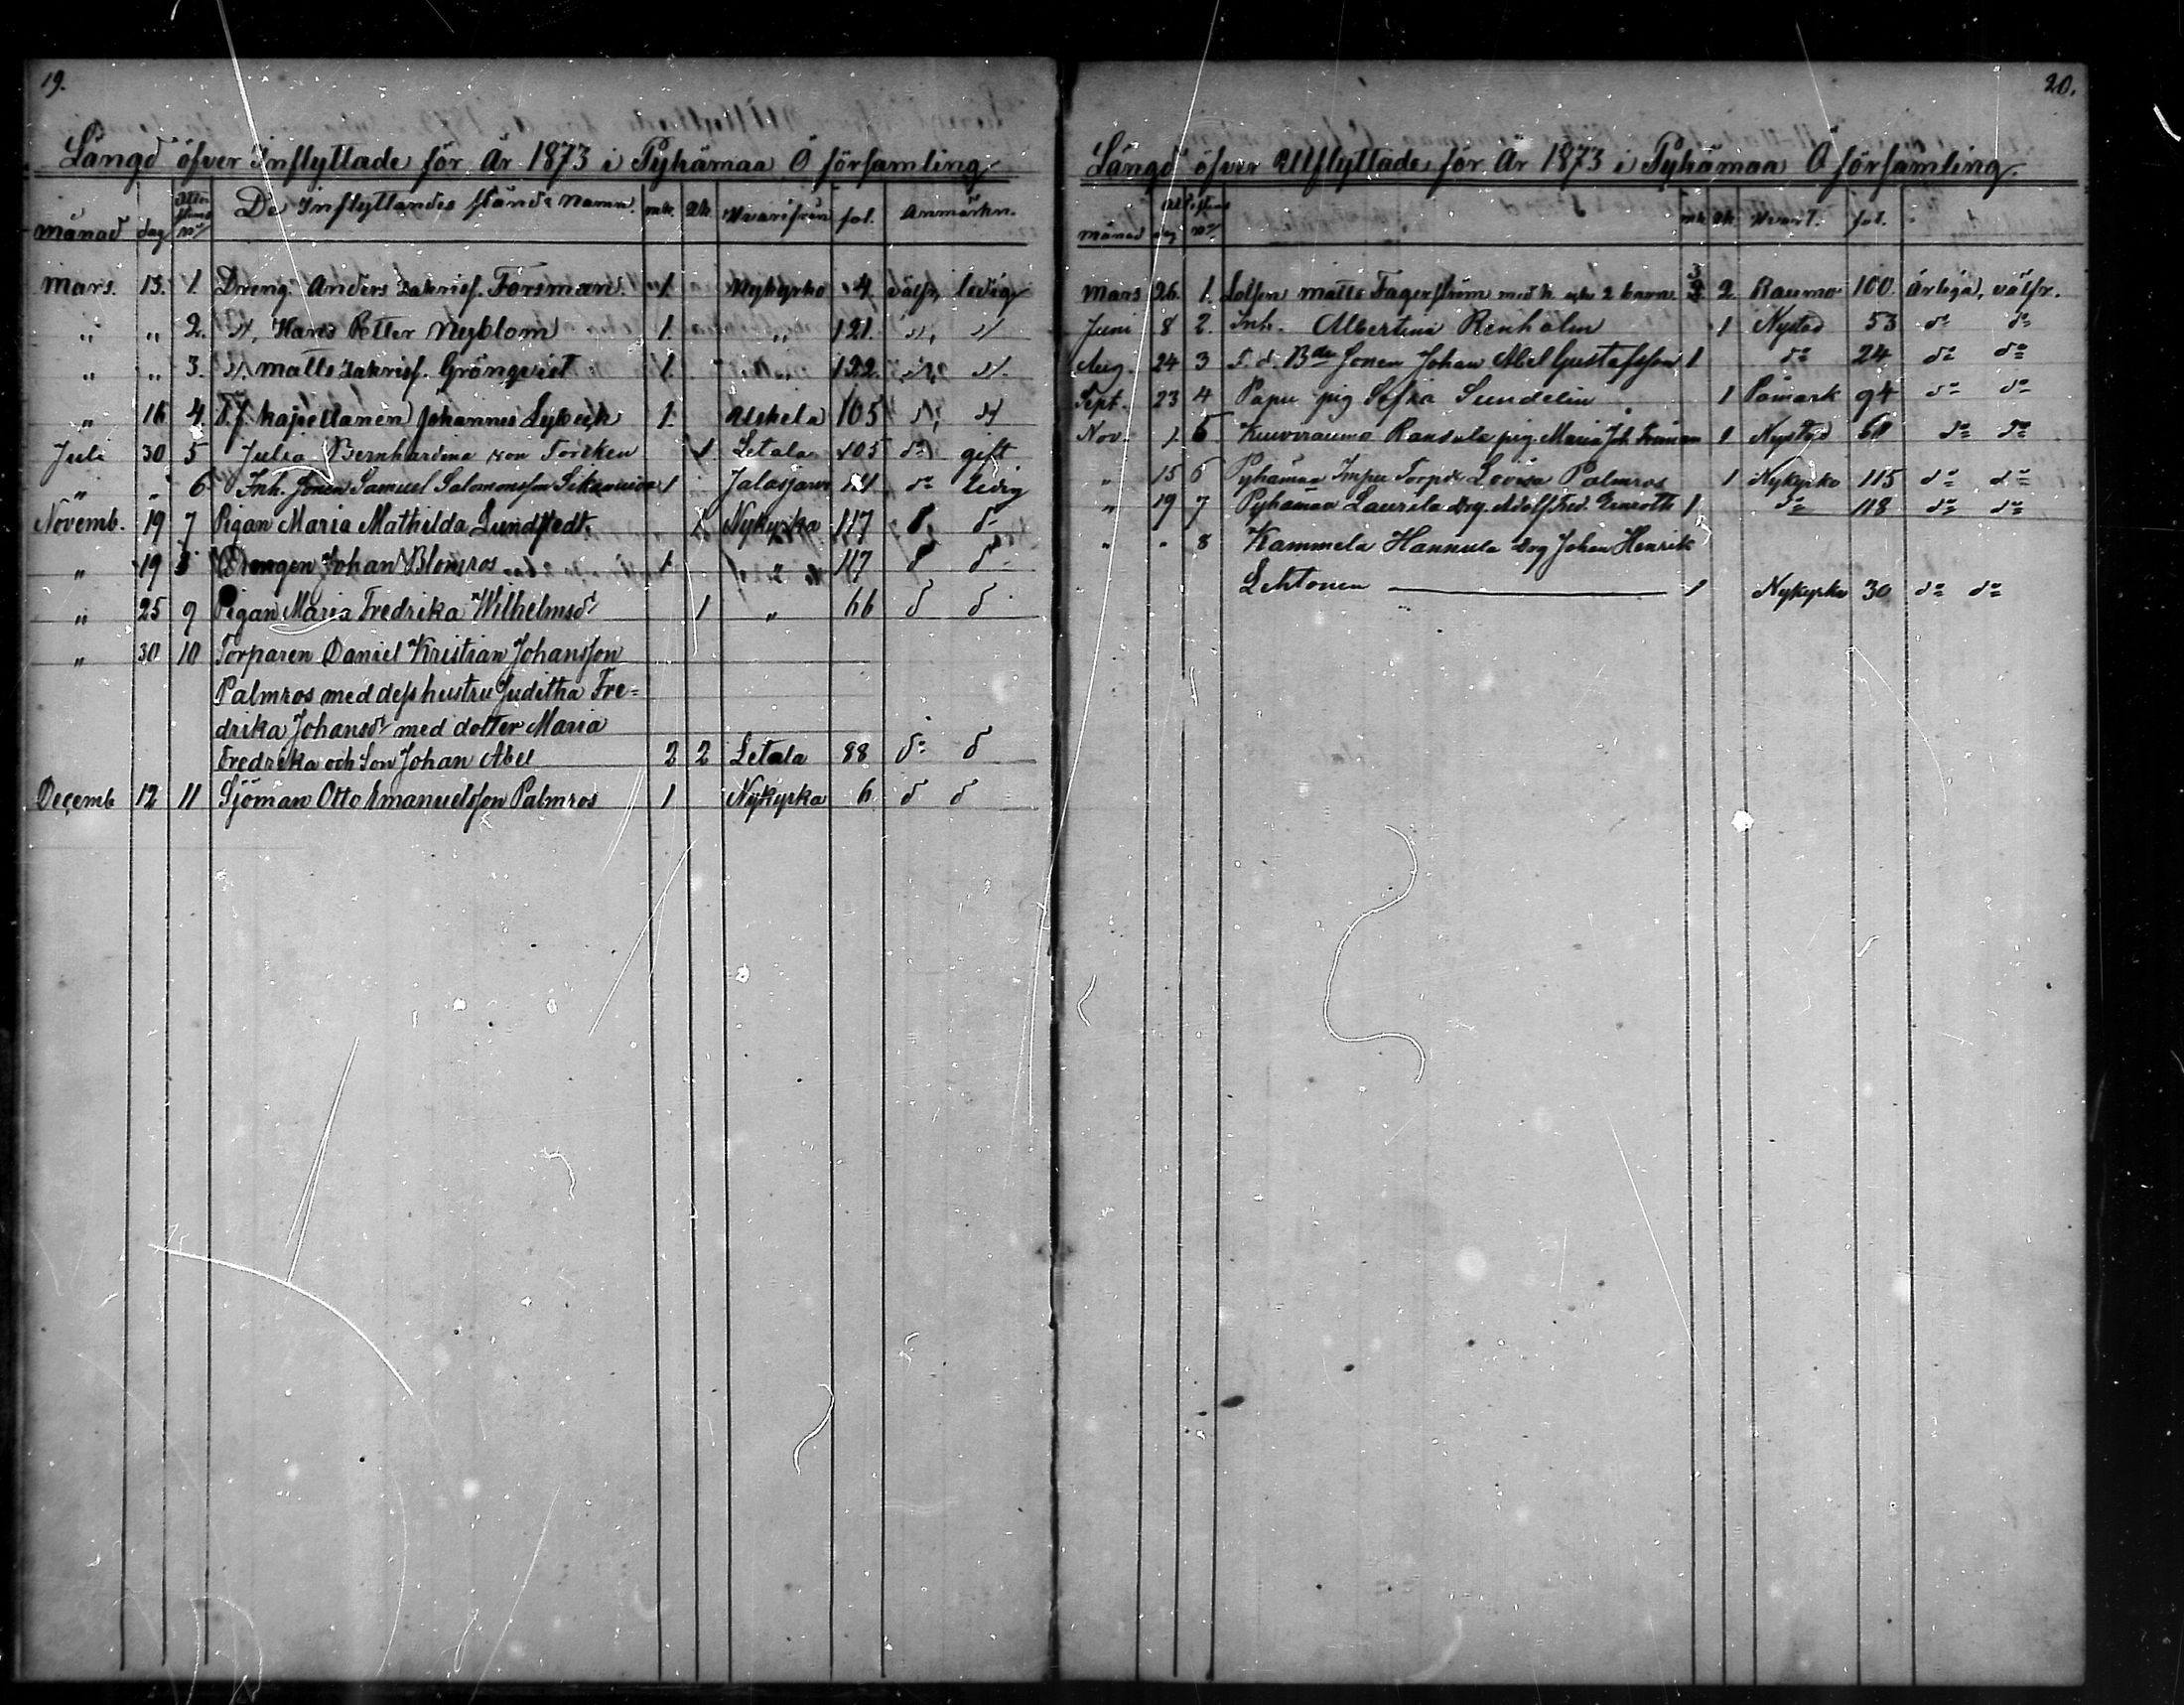 19.
Längd öfver Inflyttade för År 1873 i Pyhämaa Ö församling
månad dag Attestens No De Inflyttandes stånd o namn. mk. qk. Hvarifrån fol. Anmärkn.
Mars. 13. 1. Dreng. Anders Zakrisf. Forsman. 1. Nykyrko 4. välfr, ledig
" " 2. d, Hans Petter Nyblom 1. " 121. d, d
" " 3. d, Matts Zakrisf. Grönqvist 1. " 122. d, d.
" 16 4. T.f. kapellanen Johannes 1. Uskela 105 d, d
Juli 30 5 Julia Bernhardina von Törcken 1 Letala 105 do gift
" " 6 Inh. Sonen Samuel Salomonsson 1 do ledig
Novemb. 19 7 Pigan Maria Mathilda Lundstedt. 1 Nykyrka 117 d, d
" 19 8 Drengen Johan Blomros 1 " 117 d d
" 25 9 Pigan Maria Fredrika Wilhelmsd 1 " 66 d d
" 30 10 Torparen Daniel Kristian Johansson
Palmros med dess hustru Juditha Fre=
drika Johansdr med dotter Maria
Fredrika och Son Johan Abel 2 2 Letala 88 do d
Decemb 12 11 Sjöman Otto Emanuelsson Palmros 1 Nykyrka 6 d d
20.
Längd öfver Utflyttade för År 1873 i Pyhämaa Ö församling.
månad dag Attestens No mk qk. Hvart. fol.
Mars 26. 1. Lotsen Matts Fagerström med h. och 2 barn. 3 2. Raumo 100. ärliga, välfr.
Juni 8 2. Inh. Albertina Renholm 1 Nystad 53 do do
Aug. 24 3 F. d. Bde Sonen Johan Abel Gustafsson 1 do 24 do do
Sept. 23 4 Papu pig Sofia Sundelin 1 Påmark 94 do do
Nov. 1 5 Kuivrauma Ransula pig. Maria Joh. 1 Nystad do do
" 15 6 Pyhämaa Impu Torpdr Lovisa Palmros 1 Nykyrko 115 do do
" 19 7 Pyhämaa Laurila Drg. Adolf Fred. Grenroth 1 do 118 do do
" " 8 Kammela Hannula Drg Johan Henrik
Lehtonen 1 Nykyrko 30 do do